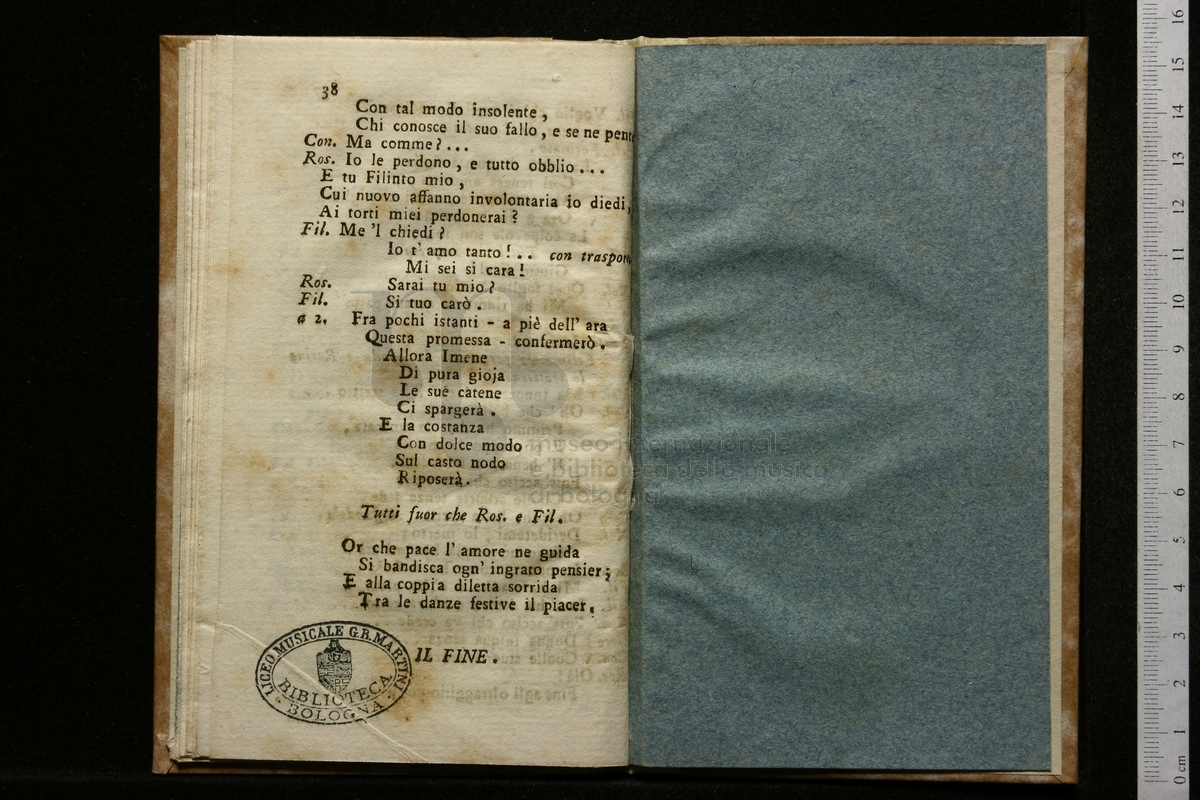 38
Con tal modo insolente,
Chi conosce il suo fallo, e se ne pente
Con. Ma comme?...
Ros. Io le perdono, e tutto obblio...
E tu Filinto mio,
Cui nuovo affanno involontaria io diedi,
Ai torti miei perdonerai?
Fil. Me 'l chiedi?
Io t' amo tanto!.. con trasporto
Mi sei sì cara!
Ros. Sarai tu mio?
Fil. Si tuo carò.
a 2. Fra pochi istanti - a piè dell' ara
Questa promessa - confermerò.
Allora Imene
Di pura gioja
Le sue catene
Ci spargerà.
E la costanza
Con dolce modo
Sul casto nodo
Riposerà.
Tutti fuor che Ros. e Fil.
Or che pace l' amore ne guida
Si bandisca ogn' ingrato pensier;
E alla coppia diletta sorrida
Tra le danze festive il piacer.
IL FINE.
LICEO MUSICALE G.B. MARTINI
BIBLIOTECA
BOLOGNA
museo internazionale
e biblioteca della musica
di bologna
0 cm 1 2 3 4 5 6 7 8 9 10 11 12 13 14 15 16